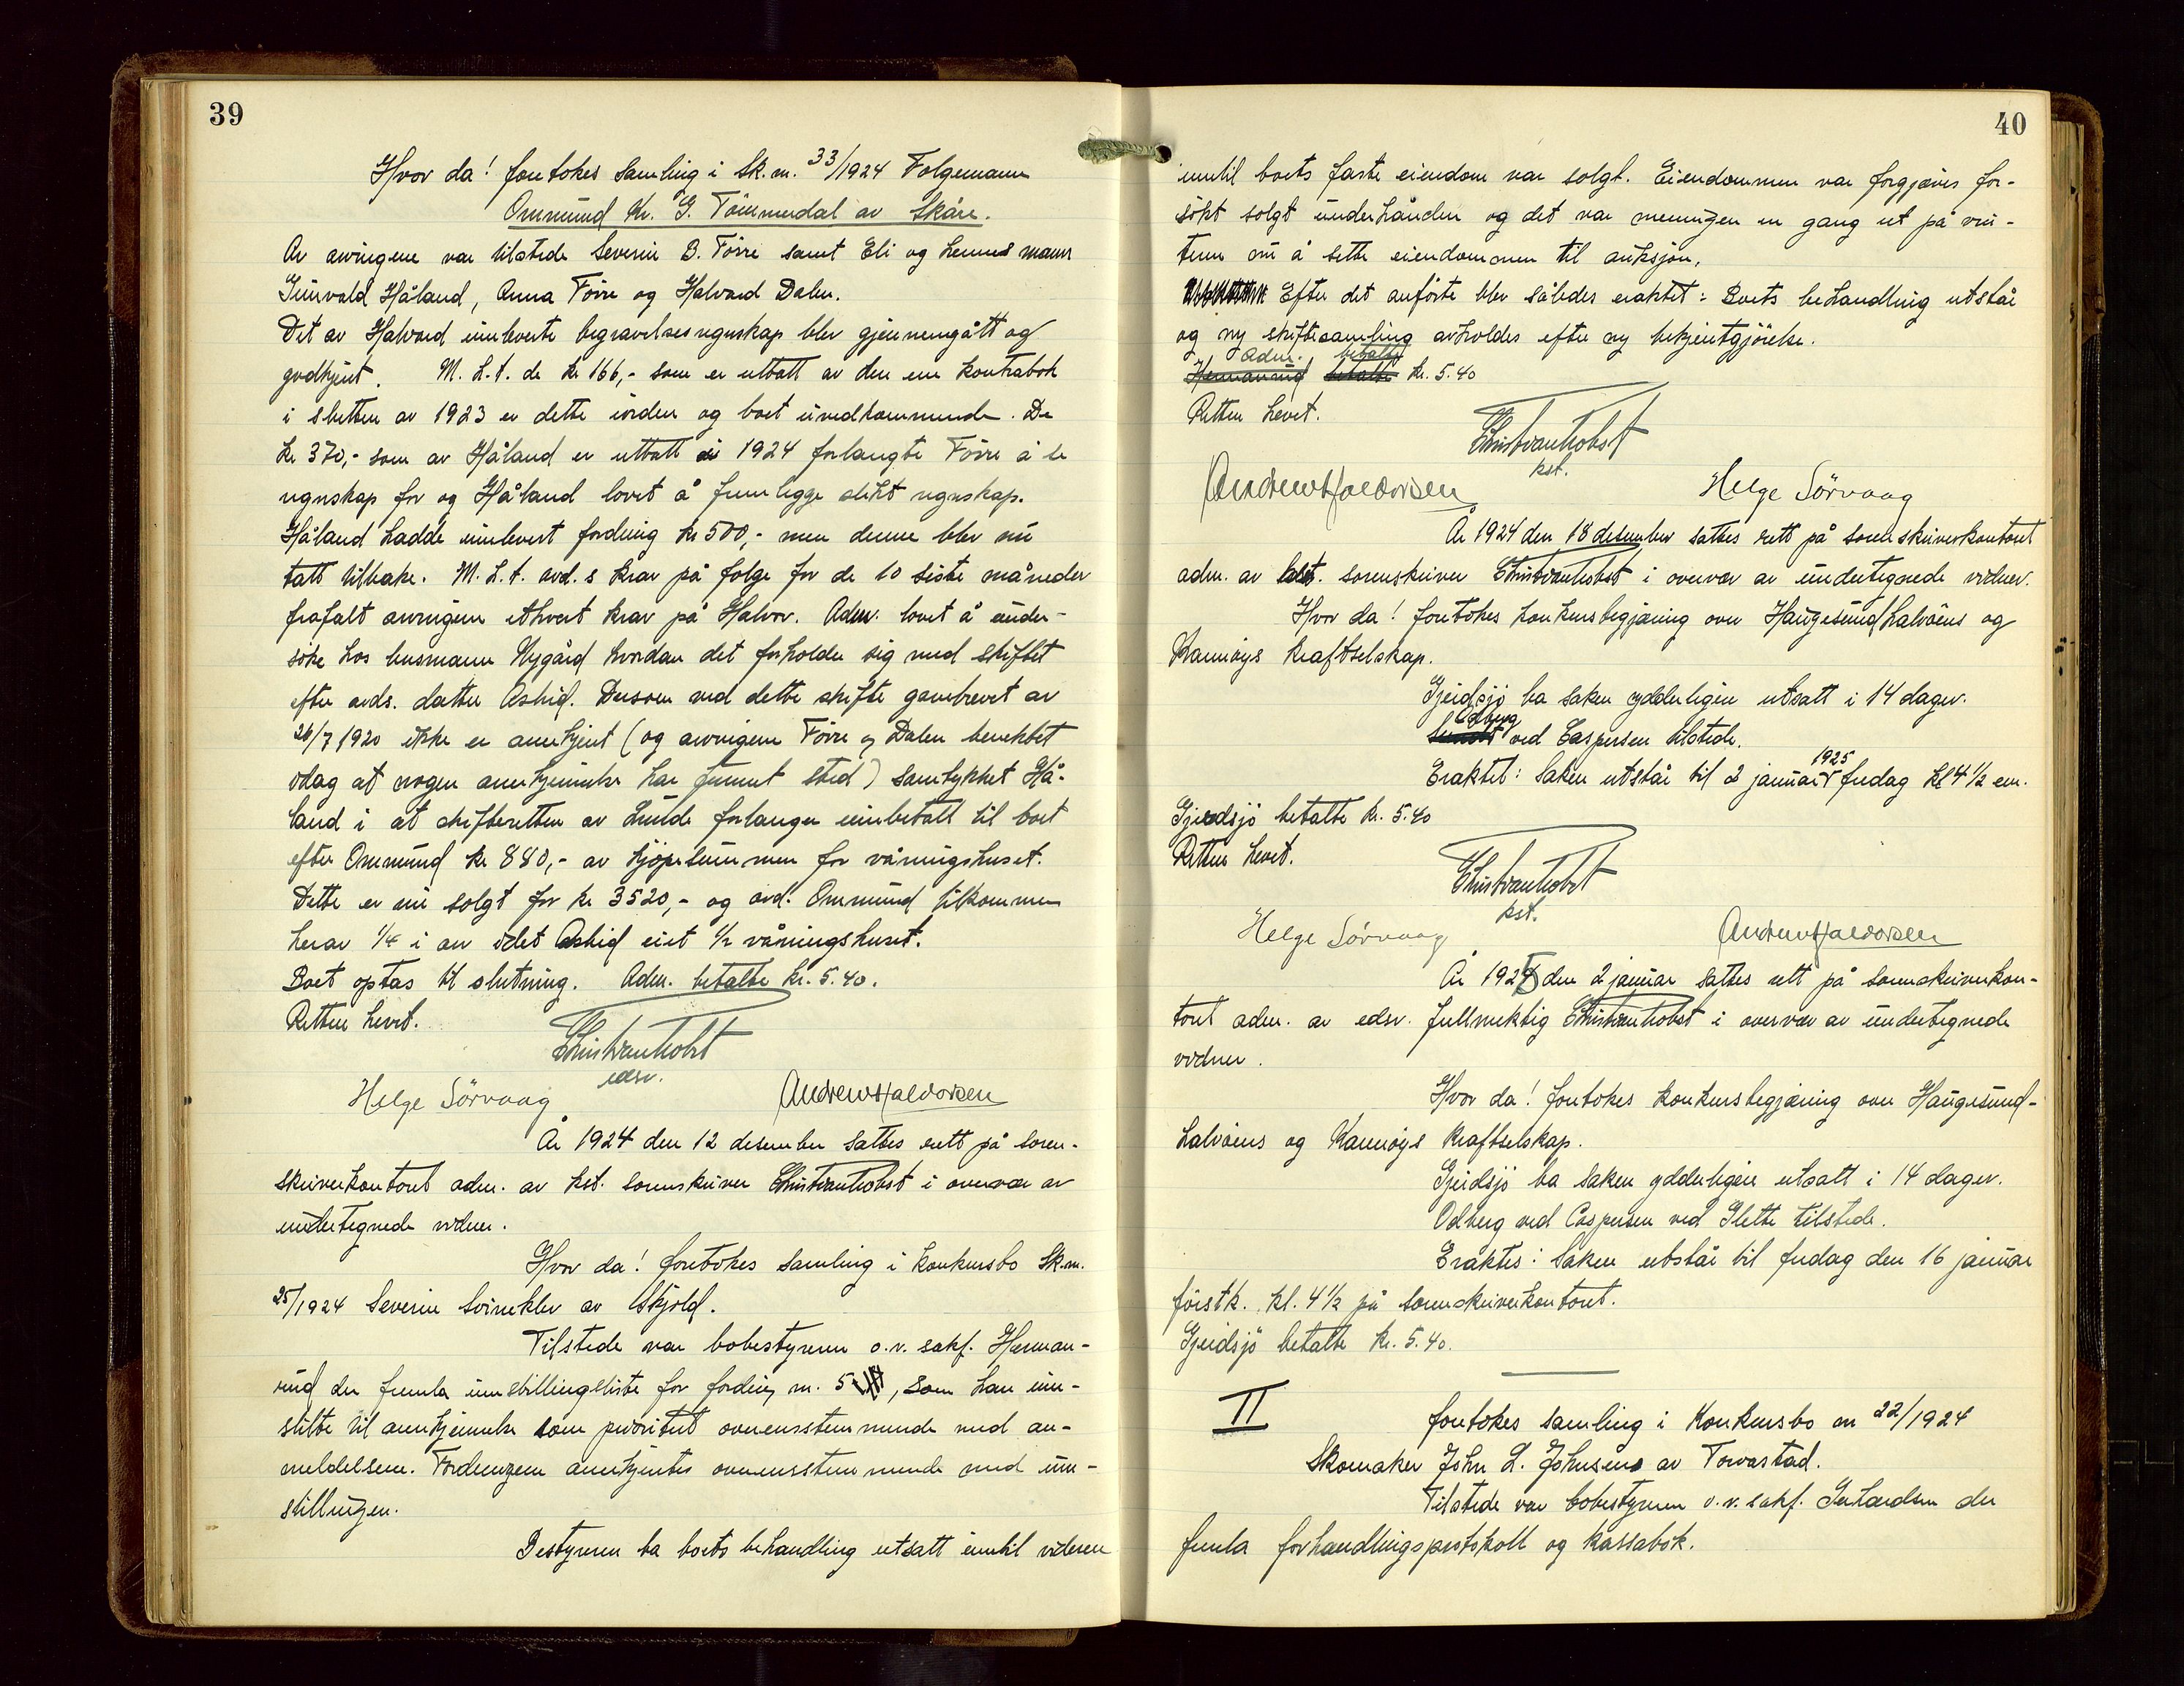 39
Hvor da! foretokes samling i Sk. nr. 33/1924 Folgemann
Ommund Kr. G. Tömmerdal av Skåre.
Av arvingene var tilstede Severin B. Förre samt Eli og hennes mann
Gunvald Håland, Anna Förre og Halvard Dalen.
Det av Halvard innleverte begravelsesregnskap blev gjennemgått og
godkjent. M. h. t. de kr 166,- som er uttatt av den ene kontrabok
i slutten av 1923 er dette iorden og boet uvedkommende. De
kr 370,- som av Håland er uttatt i 1924 forlangte Förre å se
regnskap for og Håland lovet å fremlegge slikt regnskap.
Håland hadde innlevert fordring kr 500,- men denne blev nu
tatt tilbake. M. h. t. avd.s krav på folge for de 10 siste måneder
frafalt arvingene ethvert krav på Halvor. Adm. lovet å under-
söke hos lensmann Nygård hvordan det forholder sig med skiftet
efter avds. datter Astrid. Dersom ved dette skifte gavebrevet av
26/7 1920 ikke er anerkjent (og arvingene Förre og Dalen benektet
idag at nogen anerkjennelse har funnet sted) samtykket Hå-
land i at skifteretten av Lunde forlanger innbetalt til boet
efter Ommund kr 880,- av kjöpesummen for våningshuset.
Dette er nu solgt for kr 3520,- og avd. Ommund tilkommer
herav 1/4 i arv idet Astrid eiet 1/2 våningshuset.
Boet optas til slutning. Adm. betalte kr. 5.40.
Retten hevet.
Chr. Svanholst
edsv.
Helge Sörvaag Andrew Haldorsen
År 1924 den 12 desember sattes rett på soren-
skriverkontoret adm. av kst. sorenskriver Chr. Svanholst i overvær av
undertegnede vidner.
Hvor da! foretokes samling i konkursbo Sk. nr.
25/1924 Severin Svineklev av Skjold.
Tilstede var bobestyreren o.r. sakf. Herman-
rud der fremla innstillingsliste for fordring nr. 5, som han inn-
stilte til anerkjennelse som prioritert overensstemmende med an-
meldelsen. Fordringen anerkjentes overensstemmende med inn-
stillingen.
Bestyreren ba boets behandling utsatt inntil videre
40
inntil boets faste eiendom var solgt. Eiendommen var forgjæves for-
sökt solgt underhånden og det var meningen en gang ut på vin-
teren nu å sette eiendommen til auksjon.
Efter det anförte blev således eraktet: Boets behandling utstår
og ny skiftesamling avholdes efter ny bekjentgjörelse.
Adm. betalte
Hermanrud betalte kr. 5.40
Retten hevet.
Chr. Svanholst
kst.
Andrew Haldorsen Helge Sörvaag
År 1924 den 18 desember sattes rett på sorenskriverkontoret
adm. av kst. sorenskriver Chr. Svanholst i overvær av undertegnede vidner.
Hvor da! foretokes konkursbegjæring over Haugesundhalvöens og
Karmöys kraftselskap.
Gjeidsjö ba saken ydderligere utsatt i 14 dager.
Odberg
ved Caspersen tilstede.
1925
Eraktet: Saken utstår til 2 januar fredag kl 4 1/2 em.
Gjeidsjö betalte kr. 5.40
Retten hevet.
Chr. Svanholst
kst.
Helge Sörvaag Andrew Haldorsen
År 1925 den 2 januar sattes rett på sorenskriverkon-
toret adm. av edsv. fullmektig Chr. Svanholst i overvær av undertegnede
vidner.
Hvor da! foretokes konkursbegjæring over Haugesund-
halvöens og Karmöys kraftselskap.
Gjeidsjö ba saken ydderligere utsatt i 14 dager.
Odberg ved Caspersen ved Slette tilstede.
Eraktes: Saken utstår til fredag den 16 januar
förstk. kl. 4 1/2 på sorenskriverkontoret.
Gjeidsjö betalte kr. 5.40.
II foretokes samling i Konkursbo nr 22/1924
Skomaker John L. Johnsens av Torvastad.
Tilstede var bobestyreren o.r. sakf. Gerhardsen der
fremla forhandlingsprotokoll og kassabok.